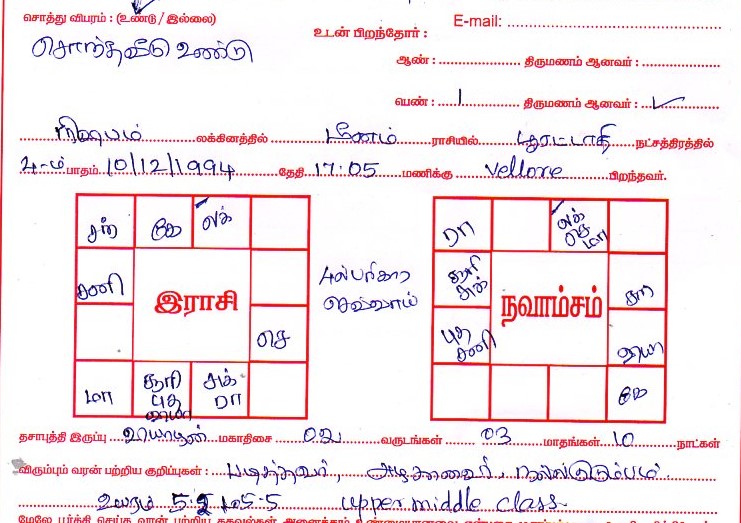 சொத்து விபரம் : (உண்டு / இல்லை)
E-mail:
உடன் பிறந்தோர் :
சொந்தவீடு உண்டு
ஆண் : திருமணம் ஆனவர் :
பெண் : 1 திருமணம் ஆனவர் : ✓
ரிஷபம் லக்கினத்தில் மீனம் ராசியில் பூரட்டாதி நட்சத்திரத்தில்
4-ம் பாதம் 10/12/1994 தேதி 17.05 மணிக்கு Vellore பிறந்தவர்.
சந் கே லக்
சனி
இராசி
செ
மா சூரி புத வியா சுக் ரா
4ல் பரிகார செவ்வாய்
ரா லக் செ மா
சூரி சுக்
நவாம்சம்
சந்
புத சனி
வியா
கே
தசாபுத்தி இருப்பு வியாழன் மகாதிசை 02 வருடங்கள் 03 மாதங்கள் 10 நாட்கள்
விரும்பும் வரன் பற்றிய குறிப்புகள் : படித்தவர், அழகானவர், நல்லகுடும்பம்
உயரம் 5.2 to 5-5 upper middle class